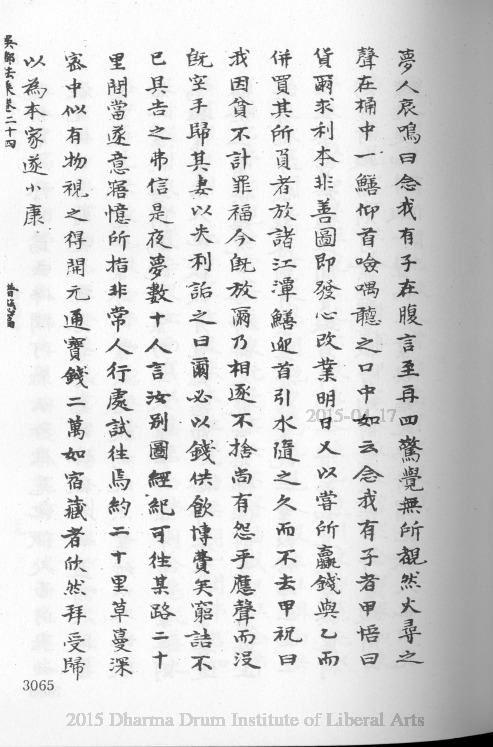 夢人哀鳴曰念我有子在腹言至再四驚覺無所覩然火尋之
聲在桶中一鱔仰首噞喁聽之口中如云念我有子者甲悟曰
貨爾求利本非善圖即發心改業明日又以嘗所贏錢與乙而
併買其所負者放諸江潭鱔迎首引水隨之久而不去甲祝曰
我因貧不計罪福今既放爾乃相逐不捨尚有怨乎應聲而沒
既空手歸其妻以失利詬之曰爾必以錢供飲博費矣窮詰不
已具告之弗信是夜夢數十人言汝別圖經紀可往某路二十
里間當遂意寤憶所指非常人行處試往焉約二十里草蔓深
密中似有物視之得開元通寶錢二萬如宿藏者欣然拜受歸
以為本家遂小康
吳都法乘卷二十四
普
篇
3065
2015-04-17
2015 Dharma Drum Institute of Liberal Arts